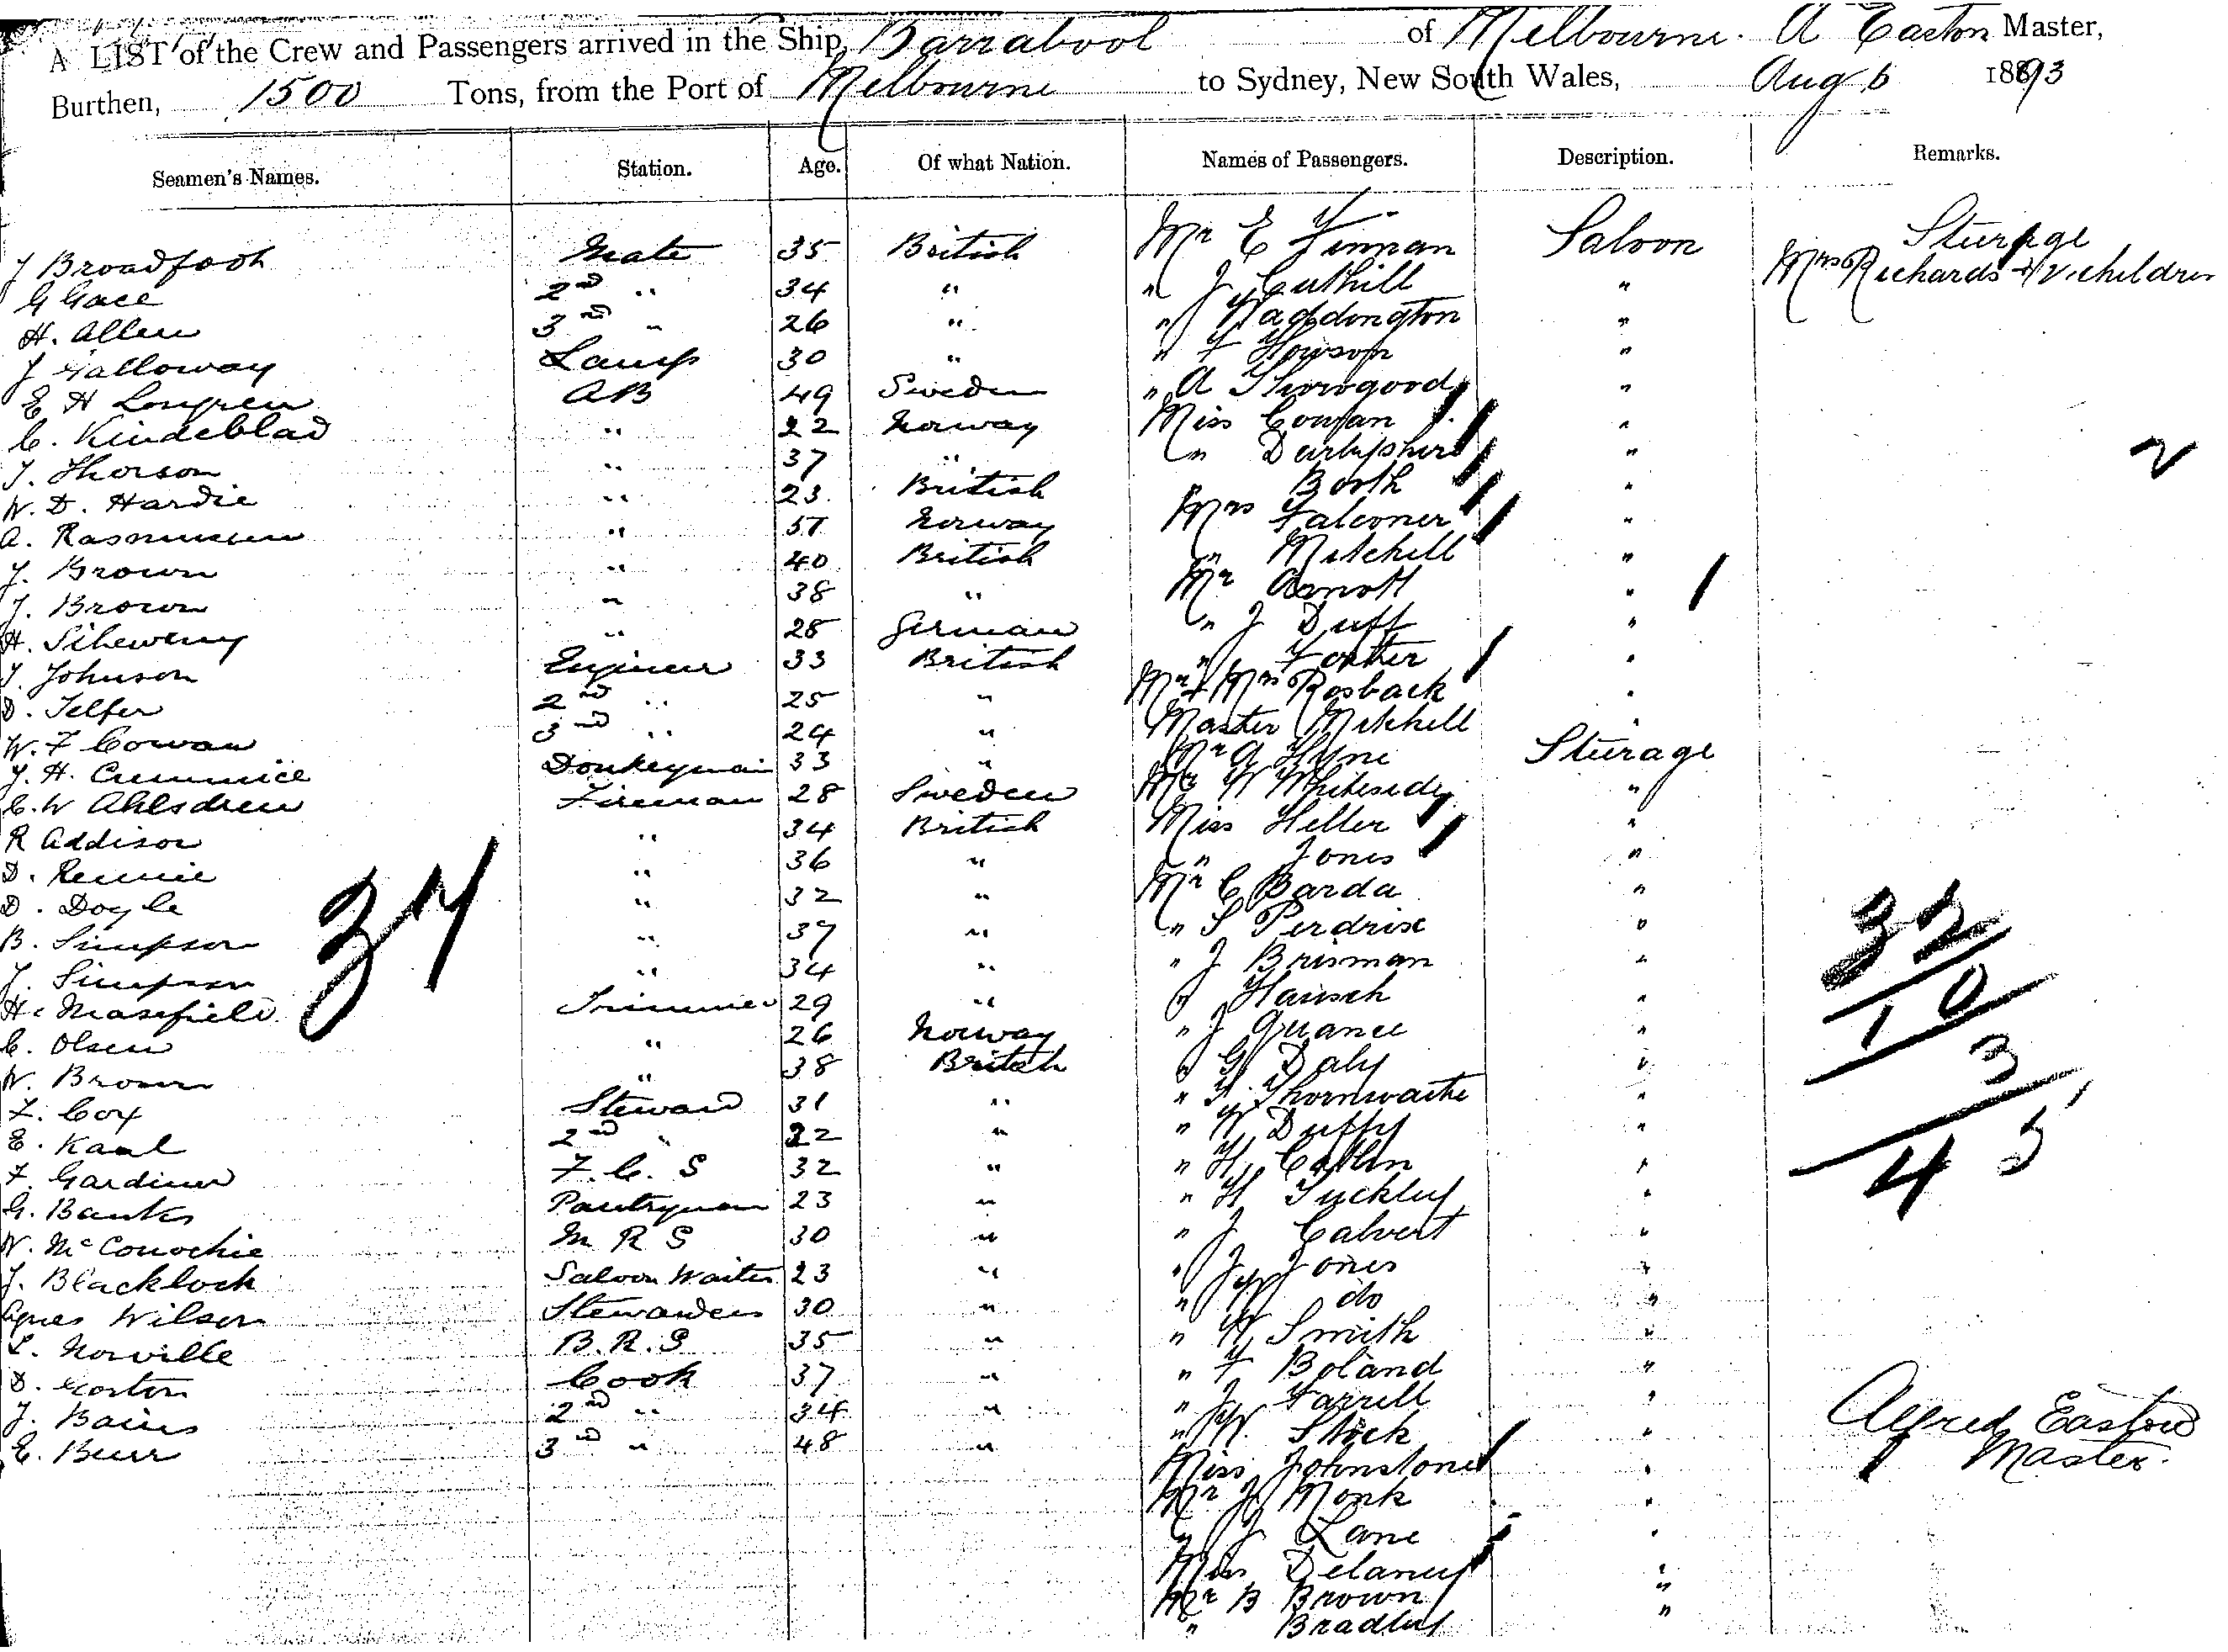 A LIST of the Crew and Passengers arrived in the Ship, Barrabool of Melbourne. A Easton Master,
Burthen, 1500 Tons, from the Port of Melbourne to Sydney, New South Wales, Aug 6 1893
Seamen's Names. Station. Age. Of what Nation. Names of Passengers. Description. Remarks.
J Broadfoot Mate 35 British Mr E Finnan Saloon Sturage
G Gace 2nd " 34 " " J Cuthill " Mrs Richards & 2 children
H. Allen 3rd " 26 " " Waddington "
J Galloway Lamps 30 " " F Howson "
E H Longren AB 49 Sweden " A Thorogood "
C. Kindeblad " 22 Norway Miss Cowan "
J. Thorson " 37 " " Derbyshire "
W. D. Hardie " 23 British Booth " 2
A. Rasmussen " 51 Norway Mrs Falconer "
J. Brown " 40 British " Mitchell "
J. Brown " 38 " Mr Arnott "
H. " 28 German " J Duff "
J. Johnson Engineer 33 British " Foster "
D. Telfer 2nd " 25 " Mr & Mrs Rosback "
W. F Cowan 3rd " 24 " Master Mitchell "
J. H. Donkeyman 33 " Mr A Hyne Sturage
C. W Ahlsdrew Fireman 28 Sweden Mr W Whiteside "
R Addison " 34 British Miss Heller "
D. Rennie " 36 " " Jones "
D. Doyle " 32 " Mr C Barda "
B. Simpson " 37 " " S Perdrix "
J. Simpson " 34 " " J Brisman "
H. Masefield Trimmer 29 " " Hausch "
C. Olsen " 26 Norway " J Quance "
W. Brown " 38 British " G Daly "
F. Cox Steward 31 " " Thornwaite "
E. Kaal 2nd " 22 " " W Duffy "
F. Gardiner F. C. S 32 " " H "
G. Banks Pantryman 23 " " H Tuckley "
W. McConochie M R S 30 " " J Calvert "
J. Blacklock Saloon Waiter 23 " " J Jones "
Agnes Wilson Stewardess 30 " " do "
L. Norville B. R. S 35 " " W Smith "
D. Gorton Cook 37 " " F Boland "
J. Bains 2nd " 34 " " J Farrell "
E. Burr 3rd " 48 " " W. Stick "
Miss Johnstone "
Mr J Monk "
" J Lane "
Miss Delaney "
Mr B Brown "
" Bradley "
37
32
10
3
45
Alfred Easton
Master.